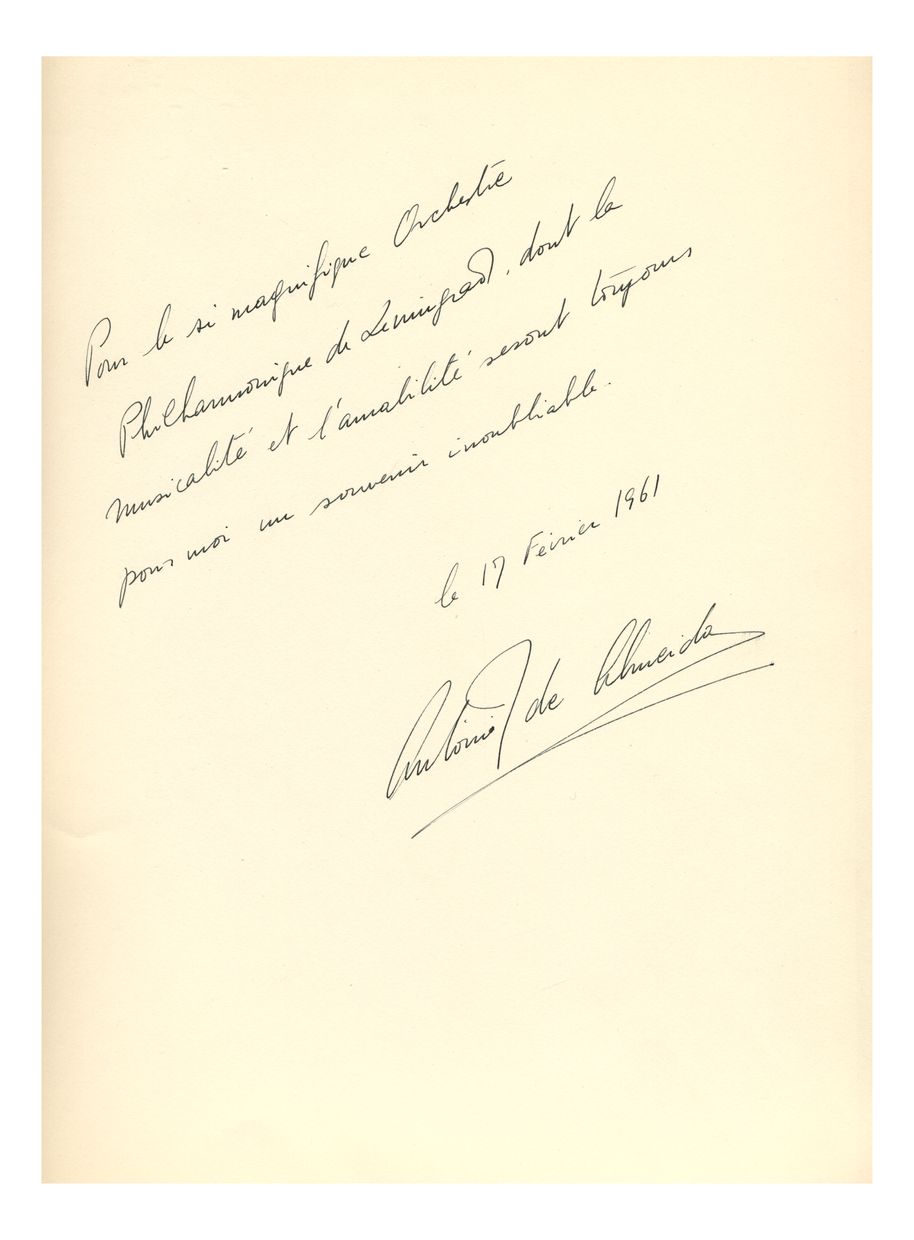 Pour le si magnifique Orchestre
Philharmonique de Leningrad, dont la
musicalité et l'amabilité seront toujours
pour moi un souvenir inoubliable.
le 17 Février 1961
Antonio de Almeida